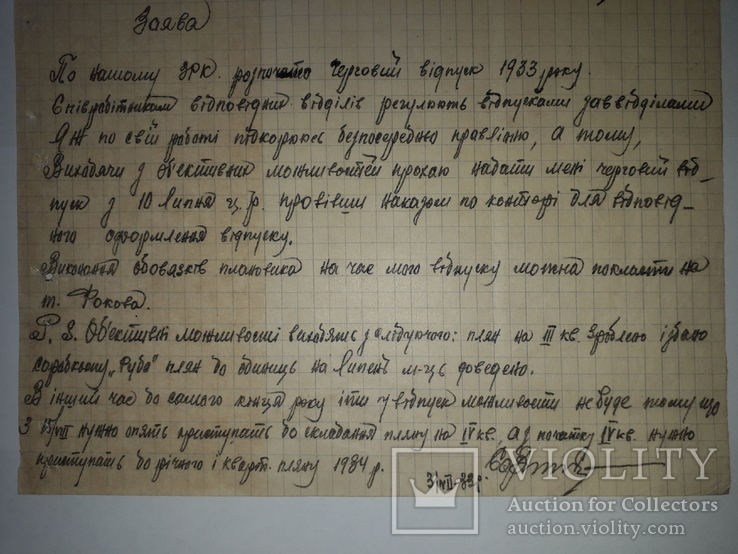 Заява
По нашому ЗРК. розпочато черговий відпуск 1933 року.
Співробітникам відповідних відділів регулюють відпусками заввідділами
Я ж по свій роботі підкорююсь безпосередньо правлінню, а тому,
Виходячи з об'єктивних можливостей прохаю надати мені черговий від-
пуск з 10 липня ц.р. провівши наказом по конторі для відповід-
ного оформлення відпуску.
Виконання обовязків плановика на час мого відпуску можна покласти на
т. Фокова.
P.S. Об'єктивні можливості виходять з слідуючого: план на III кв. зроблено і здано
"Руда" план до одиниць на липень м-ць доведено.
В інший час до самого кінця року іти у відпуск можливости не буде тому що
З нужно опять приступать до складання пляну на IV кв., а з початку IV кв. нужно
приступать до річного і кварт. пляну 1934 р.
VIOLITY
Auction for Collectors
auction.violity.com